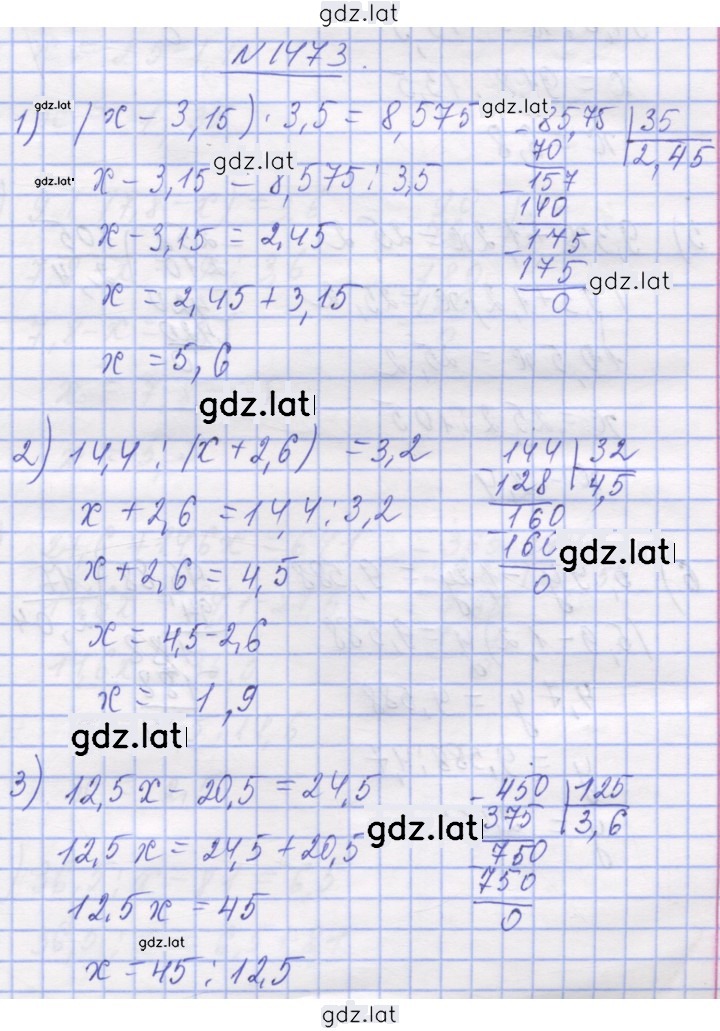 gdz.lat
N 1473.
gdz.lat
1) (x - 3,15) · 3,5 = 8,575
gdz.lat
x - 3,15 = 8,575 : 3,5
gdz.lat
gdz.lat
x - 3,15 = 2,45
x = 2,45 + 3,15
x = 5,6
- 85,75 | 35
70 | 2,45
- 157
140
- 175
175
0
gdz.lat
gdz.lat
2) 14,4 : (x + 2,6) = 3,2
x + 2,6 = 14,4 : 3,2
x + 2,6 = 4,5
x = 4,5 - 2,6
x = 1,9
- 144 | 32
128 | 4,5
- 160
160
0
gdz.lat
gdz.lat
3) 12,5 x - 20,5 = 24,5
12,5 x = 24,5 + 20,5
12,5 x = 45
gdz.lat
x = 45 : 12,5
- 450 | 125
375 | 3,6
- 750
750
0
gdz.lat
gdz.lat